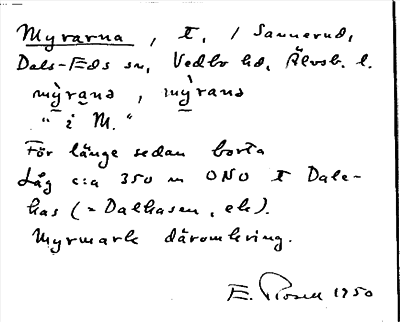 Myrarna, t, / Sannerud,
Dals-Eds sn, Vedbo hd, Älvsb. l.
my̖rana, my̖rana
"i M."
För länge sedan borta
Låg c:a 350 m ONO t Dale-
has (= Dalhasen, ek).
Myrmark däromkring.
E. Rosell 1950